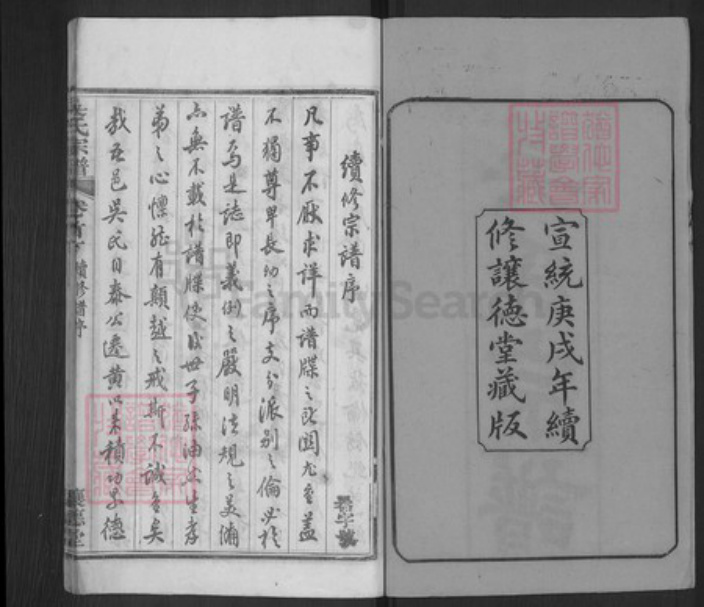 宣統庚戌年續
修讓德堂藏版
續修宗譜序
凡事不厭求詳而譜牒之所關尤重蓋
不獨尊卑長幼之序支分派別之倫必於
譜焉是誌即義例之嚴明法規之美備
亦無不載於譜牒使後世子孫油然生孝
弟之心懍然有顛越之戒斯不誠重矣
哉吾邑吳氏自泰公遷黃以來積功累德
吳氏宗譜
卷首下
續修譜序
讓德堂
FamilySearch